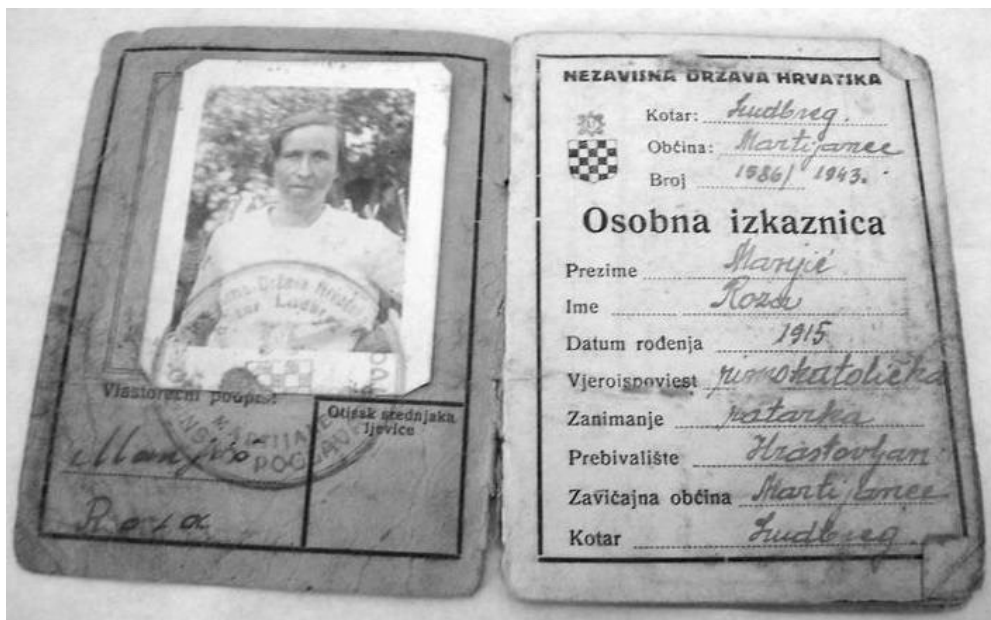 Vlastoručni podpis
Otisak srednjaka
ljevice
Manjić
Roza
NEZAVISNA DRŽAVA HRVATSKA
Kotar: Ludbreg.
Obćina: Martijanec
Broj 1586/1943.
Osobna izkaznica
Prezime Manjić
Ime Roza
Datum rođenja 1915
Vjeroispoviest rimokatolička
Zanimanje ratarka
Prebivalište Hrastovljan
Zavičajna obćina Martijanec
Kotar Ludbreg.